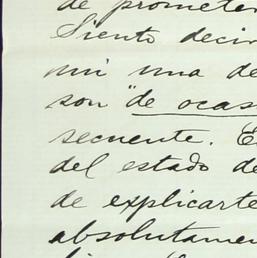 de prometer
Siento decir
mi una de
son "de ocas
secuente. E
del estado de
de explicarte
absolutamen